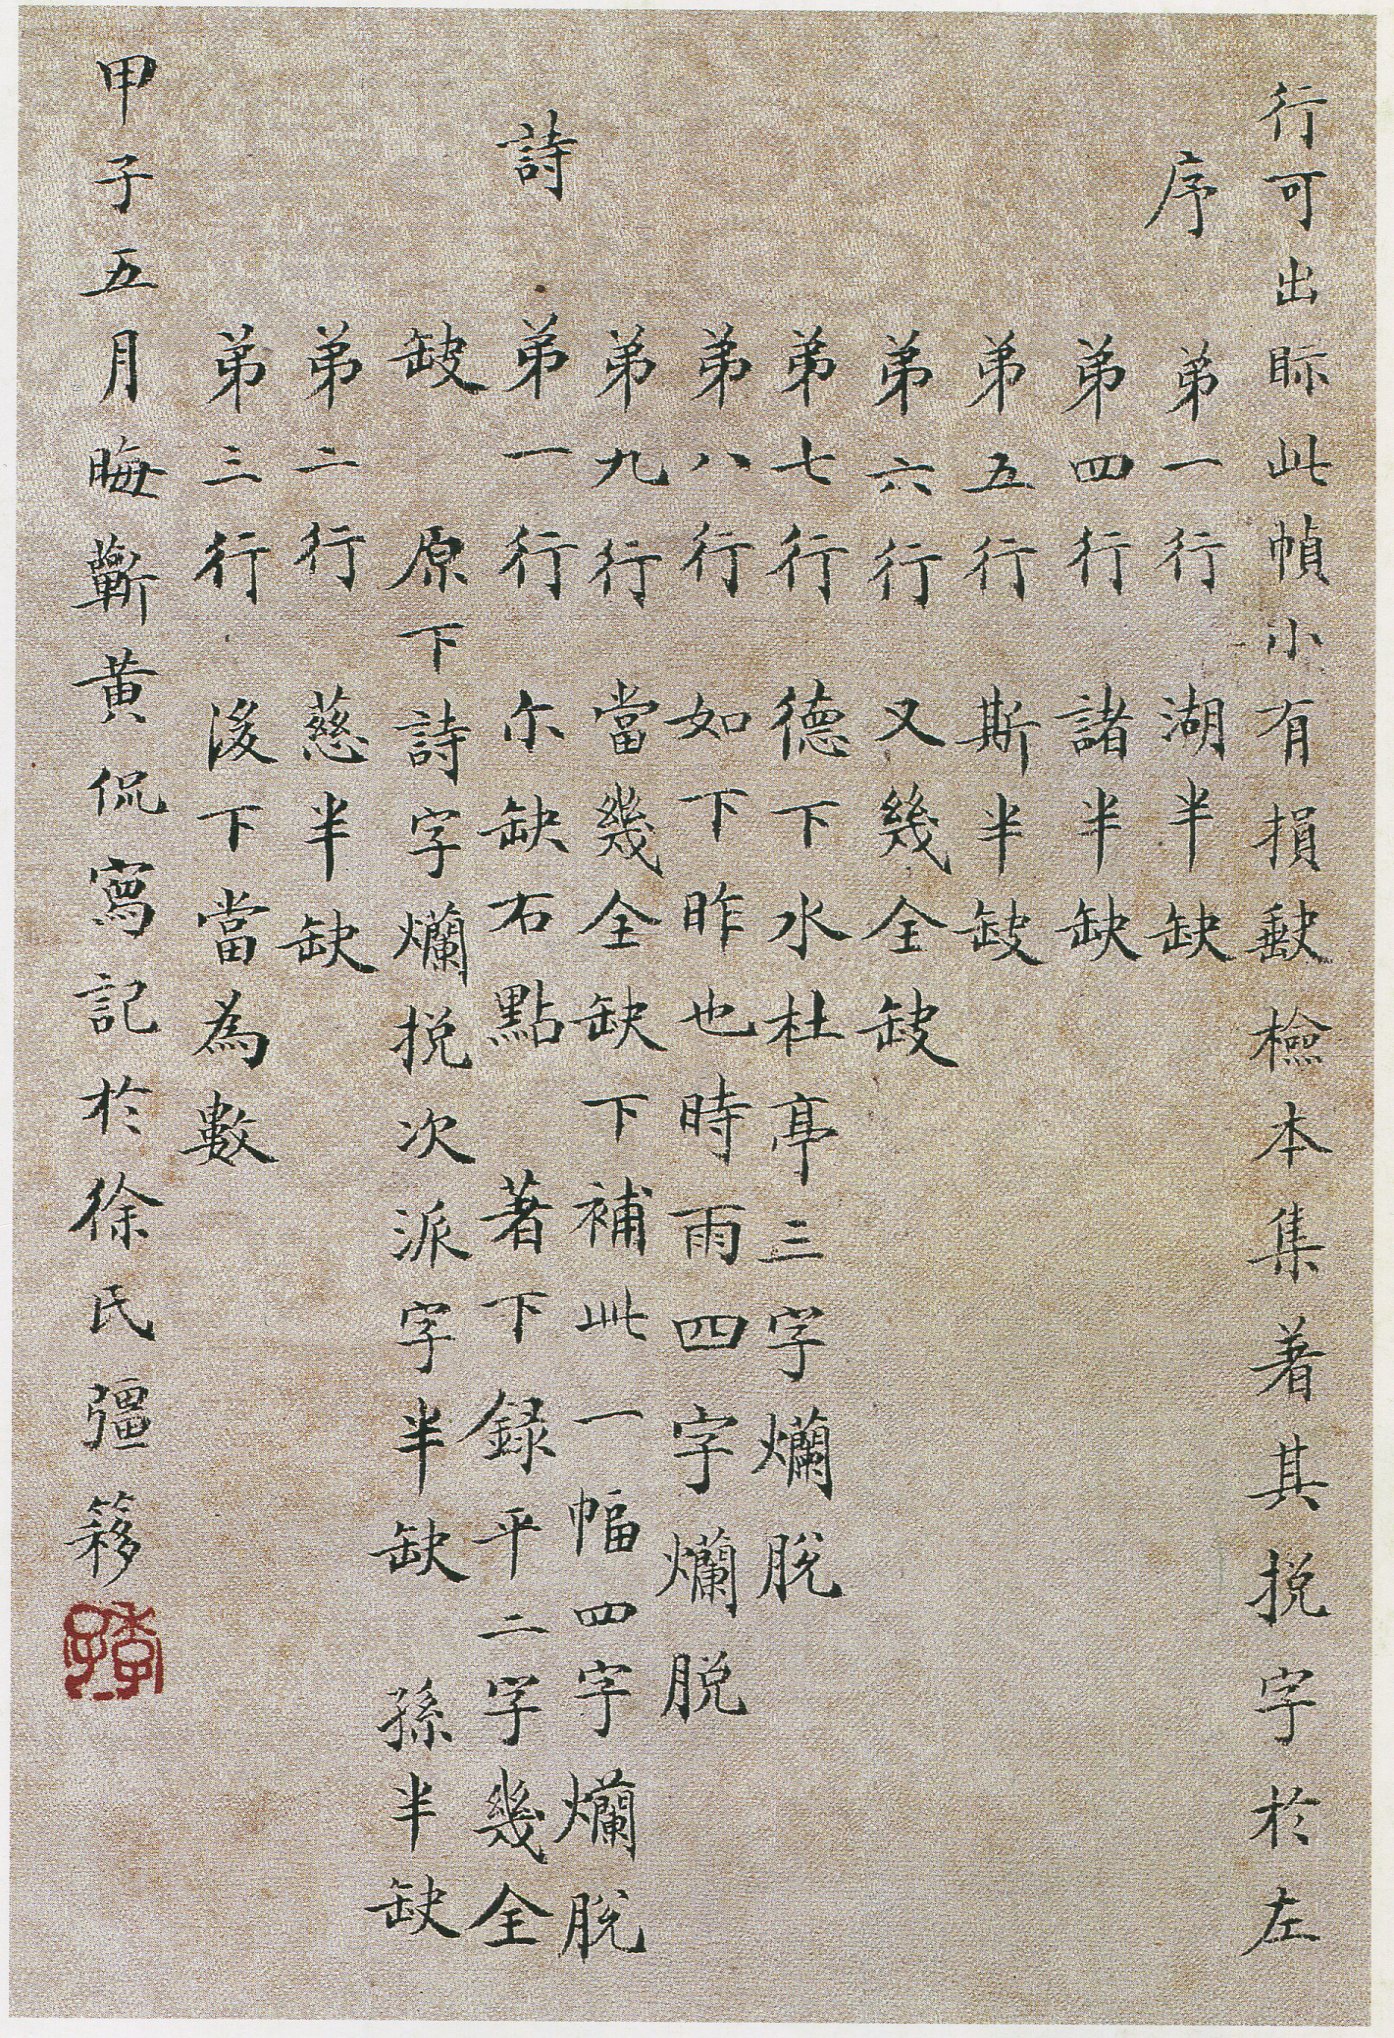 行可出眎此幀小有損缺檢本集著其挩字於左
序
弟一行 湖半缺
弟四行 諸半缺
弟五行 斯半缺
弟六行 又幾全缺
弟七行 德下水杜亭三字爛脫
弟八行 如下昨也時雨四字爛脫
弟九行 當幾全缺下補此一幅四字爛脫
詩
弟一行 尓缺右點 著下錄平二字幾全
缺 原下詩字爛挩次派字半缺 孫半缺
弟二行 慈半缺
弟三行 後下當為數
甲子五月晦蘄黃侃寫記於徐氏彊簃